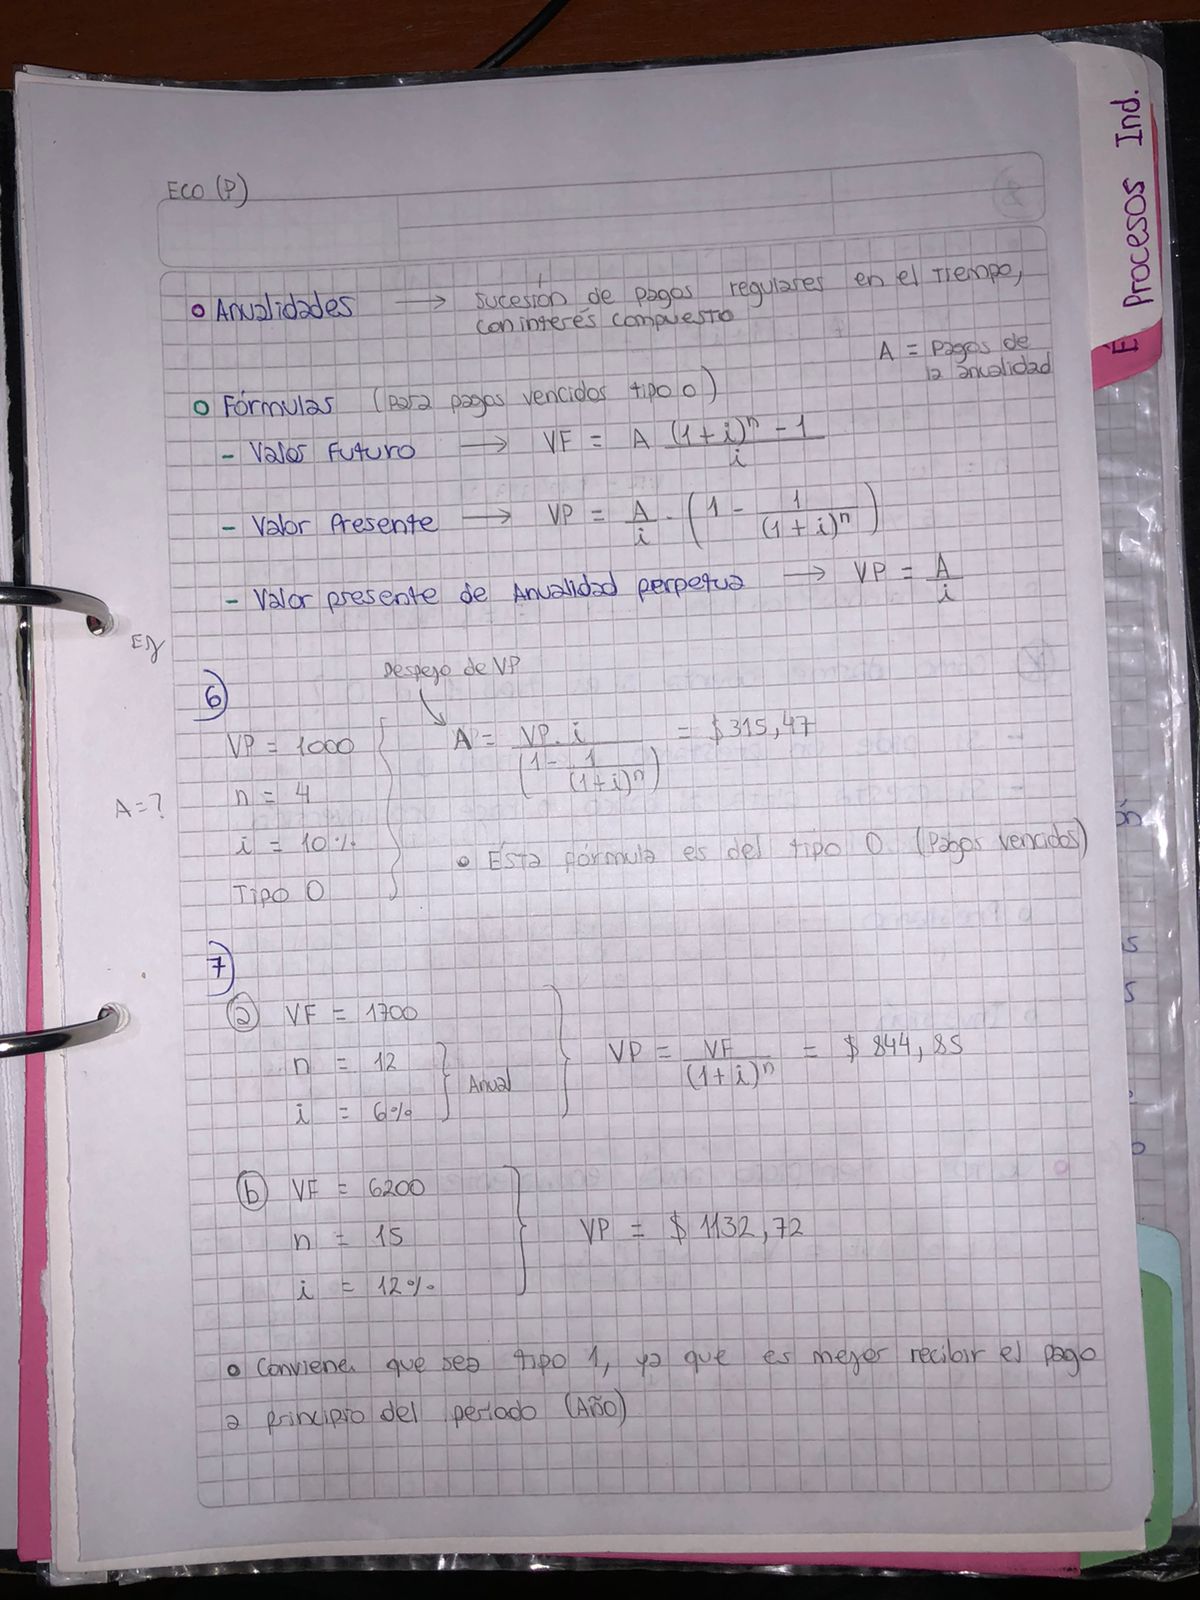 Procesos Ind.
E
ECO (P)
• Anualidades → sucesión de pagos regulares en el tiempo,
con interés compuesto
A = pagos de
la anualidad
o Fórmulas (para pagos vencidos tipo 0)
- Valor Futuro → VF = A ((1+i)^n - 1) / i
- Valor Presente → VP = A/i · (1 - 1/(1+i)^n)
- Valor presente de Anualidad perpetua → VP = A/i
Ej
6)
Despejo de VP
VP = 1000
A = VP · i / (1 - 1/(1+i)^n) = $315,47
n = 4
A = ?
i = 10%
• Esta fórmula es del tipo 0 (Pagos vencidos)
Tipo 0
7)
a) VF = 1700
n = 12
i = 6%
Anual
VP = VF / (1+i)^n = $ 844,85
b) VF = 6200
n = 15
i = 12%
VP = $ 1132,72
• Conviene que sea tipo 1, ya que es mejor recibir el pago
a principio del período (Año)